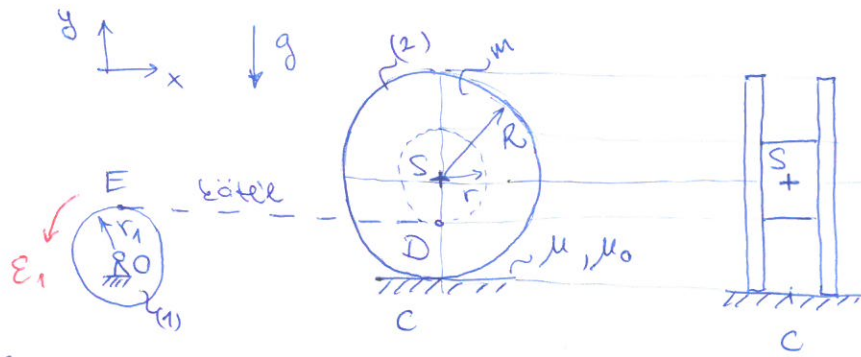 y
x
g
(2)
m
R
S
r
E
kötél
D
r₁
O
ε₁
(1)
μ, μ₀
C
S
C